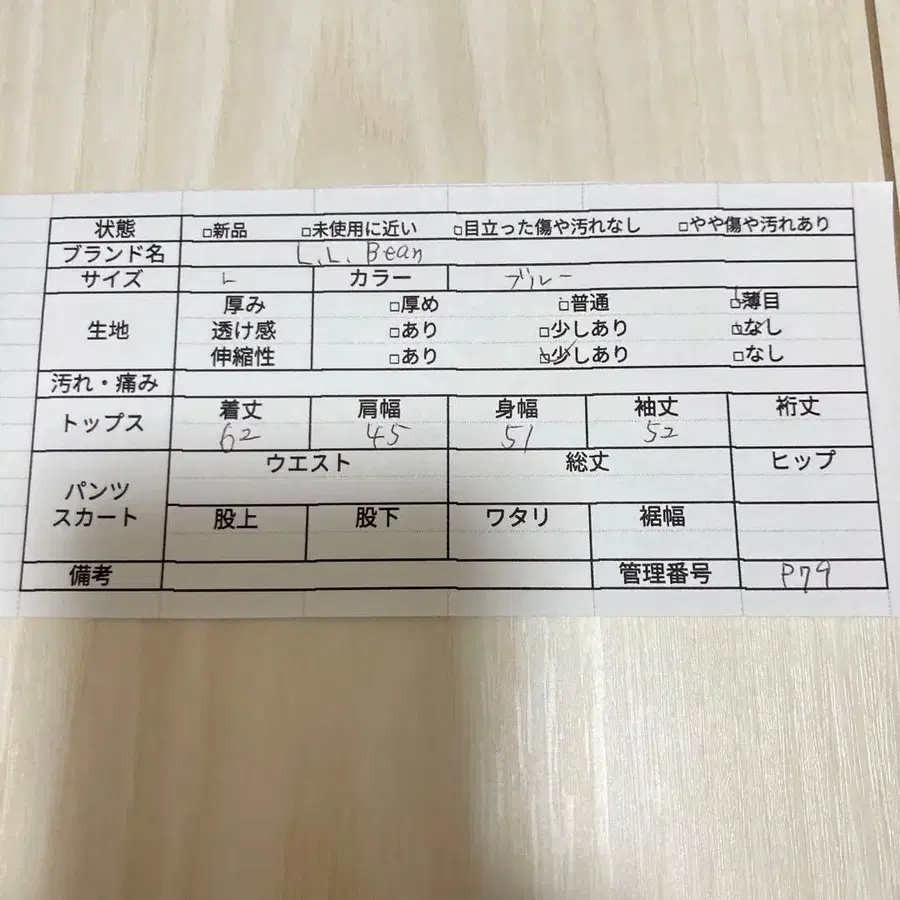 状態 □新品 □未使用に近い □目立った傷や汚れなし □やや傷や汚れあり
ブランド名 L.L.Bean
サイズ L カラー ブルー
生地 厚み □厚め □普通 □薄目
透け感 □あり □少しあり □なし
伸縮性 □あり □少しあり □なし
汚れ・痛み
トップス 着丈 肩幅 身幅 袖丈 裄丈
62 45 51 52
パンツ スカート ウエスト 総丈 ヒップ
股上 股下 ワタリ 裾幅
備考 管理番号 P79